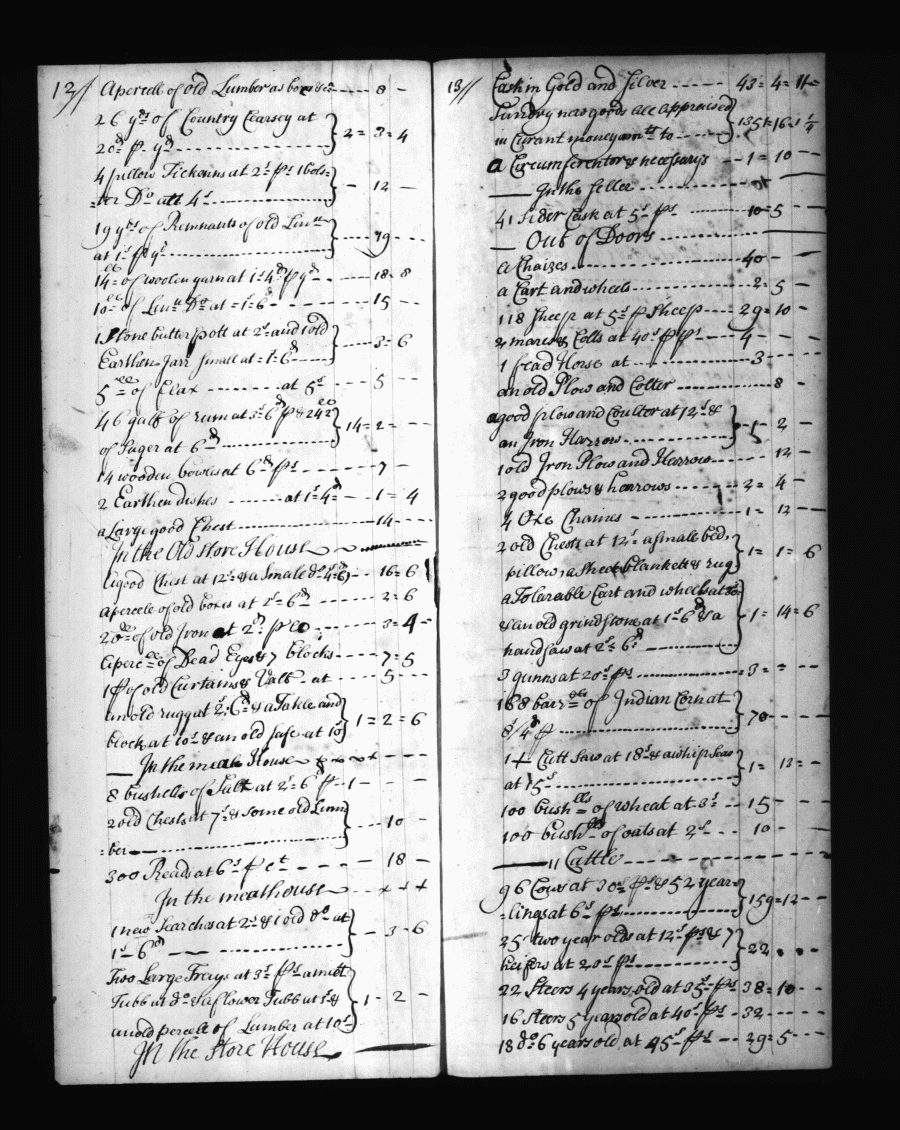 12//
A percell of old Lumber as boxes &c ---- 8 -
26 yds of Country Cearsey at
20d pr yd ---- 2 = 3 = 4
4 pillow Tickeins at 2s ps 1 bols=
=ter Do att 4s ---- 12 -
19 yds of Remnants of old Linn
at 1s pr yd ---- 19 -
14 lb of woolen yarn at 1s 4d p yd ---- 18 = 8
10 lb of Linn Do at = 1s = 6d ---- 15 -
1 Stone butter pott at 2s and 1 old
Earthen Jarr small at = 1 = 6d ---- 3 = 6
5 lb of Flax ---- at 5s ---- 5 -
46 galls of rum at 3s 6d p & 242 lb
of Suger at 6d ---- 14 = 2 -
14 wooden bowles at 6d ps ---- 7 -
2 Earthen dishes ---- at 1s = 4d - 1 = 4
a Large good Chest ---- 14 -
In the Old Store House
A good Chest at 12s & a Smale do 4s = 6d - 16 = 6
A percele of old boxes at 2s = 6d ---- 2 = 6
20 lb of old Iron at 2d p lb ---- 3 = 4 -
A perc le of Dead Eyes & 7 blocks ---- 7 = 5
1 p of old Curtains & Vall at ---- 5 -
an old rugg at 2s 6d & a Takle and
block at 10s & an old safe at 10s 1 = 2 = 6
In the meat House
8 bushells of Salt at 2s = 6 p - 1 -
2 old Chests at 7s & some old Lum
=ber ---- 10 -
300 Reads at 6s p ct ---- 18 -
In the mealhouse
1 new Searches at 2s & 1 old do at
1s 6d ---- 3 - 6
Two Large Trays at 3s ps a mitt
Tubb at do & a flower Tubb at 1s &
an old percele of Lumber at 10s 1 - 2 -
In the Store House
13//
Cash in Gold and Silver ---- 43 = 4 = 11
Sundry new goods all appraised
in Curant money amtt to ---- 1351 = 16 = 1 1/4
a Circumferentor & necessarys -- 1 = 10 --
In the Seller ----
41 Sider Cask at 5s ps ---- 10 = 5 -
Out of Doors ----
a Chaize ---- 40 -
a Cart and wheels ---- 2 = 5 -
118 Sheep at 5s p Sheep ---- 29 = 10 -
2 mares & Colts at 40s p ps ---- 4 -
1 fead Horse at ---- 3 -
an old Plow and Colter ---- 8 -
a good plow and Coulter at 12s &
an Iron Harrow ---- 1 - 2 -
1 old Iron Plow and Harrow ---- 12 -
2 good plows & harrows ---- 2 = 4 -
4 Oxe Chaines ---- 1 = 12 -
2 old Chests at 12s a smale bed,
pillow, a sheet blankett & rug 1 = 1 = 6
a Tolarable Cart and wheels at
& an old grindstone at 1s 6d & a
hand saw at 2s = 6d ---- 1 = 14 = 6
3 gunns at 20s ps ---- 3 = = -
168 barrlls of Indian Corn at
8/4 p ---- 70 -
1 + Cutt Saw at 18s & a whip Saw
at 15s ---- 1 = 13 = -
100 bushlls of wheat at 3s -- 15 -
100 bushlls of oats at 2s --- 10 -
Cattle
96 Cows at 30s ps & 52 year
=lings at 6s ps ---- 159 = 12 -
25 two year olds at 12s ps & 7
heifers at 20s ps ---- 22
22 Steers 4 years old at 35s ps 38 = 10 -
16 Steers 5 years old at 40s ps - 32 -
18 do 6 years old at 45s ps -- 29 = 5 -